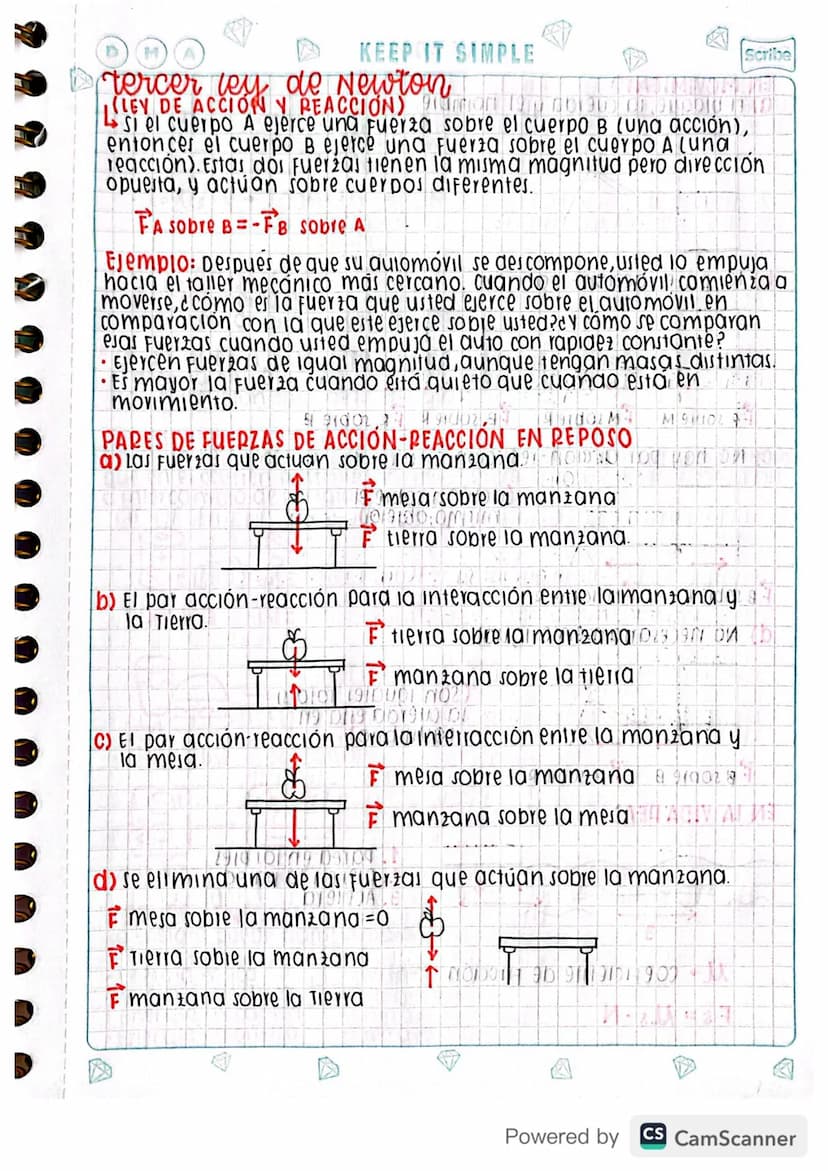 D M A
KEEP IT SIMPLE
Scribe
tercer ley de Newton
(LEY DE ACCIÓN Y REACCIÓN)
↳ Si el cuerpo A ejerce una fuerza sobre el cuerpo B (una acción),
entonces el cuerpo B ejerce una fuerza sobre el cuerpo A (una
reacción). Estas dos fuerzas tienen la misma magnitud pero dirección
opuesta, y actúan sobre cuerpos diferentes.
F⃗A sobre B = -F⃗B sobre A
Ejemplo: Después de que su automóvil se descompone, usted lo empuja
hacia el taller mecánico más cercano. Cuando el automóvil comienza a
moverse, ¿cómo es la fuerza que usted ejerce sobre el automóvil en
comparación con la que esté ejerce sobre usted? ¿Y cómo se comparan
esas fuerzas cuando usted empuja el auto con rapidez constante?
• Ejercen fuerzas de igual magnitud, aunque tengan masas distintas.
• Es mayor la fuerza cuando está quieto que cuando esta en
movimiento.
PARES DE FUERZAS DE ACCIÓN-REACCIÓN EN REPOSO
a) Las fuerzas que actuan sobre la manzana.
F⃗ mesa sobre la manzana
F⃗ tierra sobre la manzana.
b) El par acción-reacción para la interacción entre la manzana y
la Tierra.
F⃗ tierra sobre la manzana
F⃗ manzana sobre la tierra
c) El par acción-reacción para la interracción entre la manzana y
la mesa.
F⃗ mesa sobre la manzana
F⃗ manzana sobre la mesa
d) se elimina una de las fuerzas que actúan sobre la manzana.
F⃗ mesa sobre la manzana = 0
F⃗ Tierra sobre la manzana
F⃗ manzana sobre la Tierra
Powered by CS CamScanner